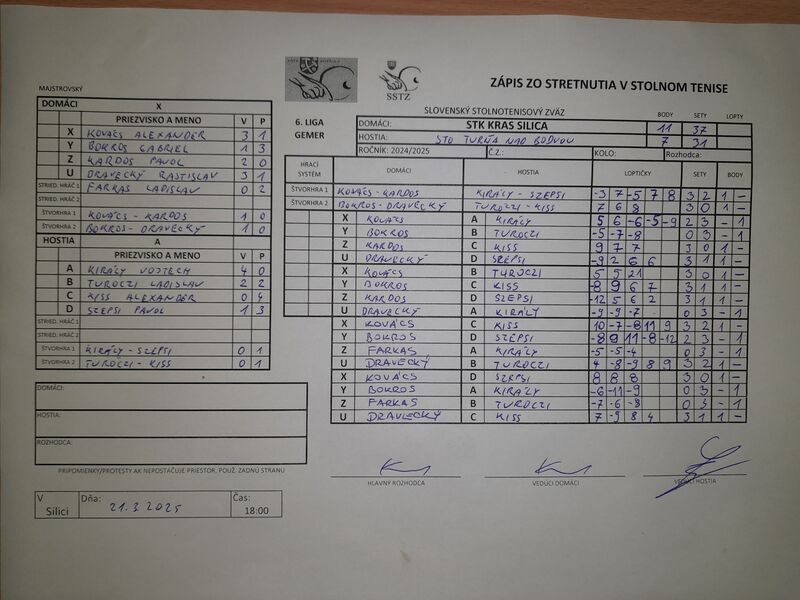 SSTZ
ZÁPIS ZO STRETNUTIA V STOLNOM TENISE
MAJSTROVSKÝ
SLOVENSKÝ STOLNOTENISOVÝ ZVÄZ
BODY SETY LOPTY
6. LIGA GEMER
DOMÁCI: STK KRAS SILICA 11 37
HOSTIA: STO TURŇA NAD BODVOU 7 31
ROČNÍK: 2024/2025 Č.Z.: KOLO: Rozhodca:
DOMÁCI X
PRIEZVISKO A MENO V P
X KOVÁCS ALEXANDER 3 1
Y BOKROS GABRIEL 1 3
Z KARDOS PAVOL 2 0
U DRAVECKÝ RASTISLAV 3 1
STRIED. HRÁČ 1 FARKAS LADISLAV 0 2
STRIED. HRÁČ 2
ŠTVORHRA 1 KOVÁCS - KARDOS 1 0
ŠTVORHRA 2 BOKROS - DRAVECKÝ 1 0
HOSTIA A
PRIEZVISKO A MENO V P
A KIRÁLY VOJTECH 4 0
B TUROCZI LADISLAV 2 2
C KISS ALEXANDER 0 4
D SZEPSI PAVOL 1 3
STRIED. HRÁČ 1
STRIED. HRÁČ 2
ŠTVORHRA 1 KIRÁLY - SZEPSI 0 1
ŠTVORHRA 2 TUROCZI - KISS 0 1
DOMÁCI:
HOSTIA:
ROZHODCA:
PRIPOMIENKY/PROTESTY AK NEPOSTAČUJE PRIESTOR, POUŽ. ZADNÚ STRANU
V Silici Dňa: 21.3.2025 Čas: 18:00
HRACÍ SYSTÉM DOMÁCI HOSTIA LOPTIČKY SETY BODY
ŠTVORHRA 1 KOVÁCS - KARDOS KIRÁLY - SZEPSI -3 7 -5 7 8 3 2 1 -
ŠTVORHRA 2 BOKROS - DRAVECKÝ TUROCZI - KISS 7 6 8 3 0 1 -
X KOVÁCS A KIRÁLY 5 6 -6 -5 -9 2 3 - 1
Y BOKROS B TUROCZI -5 -7 -8 0 3 - 1
Z KARDOS C KISS 9 7 7 3 0 1 -
U DRAVECKÝ D SZEPSI -9 2 6 6 3 1 1 -
X KOVÁCS B TUROCZI 5 5 21 3 0 1 -
Y BOKROS C KISS -8 9 6 7 3 1 1 -
Z KARDOS D SZEPSI -12 5 6 2 3 1 1 -
U DRAVECKÝ A KIRÁLY -9 -9 -7 0 3 - 1
X KOVÁCS C KISS 10 -7 -8 11 9 3 2 1 -
Y BOKROS D SZEPSI -8 9 11 -8 -12 2 3 - 1
Z FARKAS A KIRÁLY -5 -5 -4 0 3 - 1
U DRAVECKÝ B TUROCZI 4 -8 -9 8 9 3 2 1 -
X KOVÁCS D SZEPSI 8 8 8 3 0 1 -
Y BOKROS A KIRÁLY -6 -11 -9 0 3 - 1
Z FARKAS B TUROCZI -7 -6 -8 0 3 - 1
U DRAVECKÝ C KISS 7 -9 8 4 3 1 1 -
HLAVNÝ ROZHODCA VEDÚCI DOMÁCI VEDÚCI HOSTIA